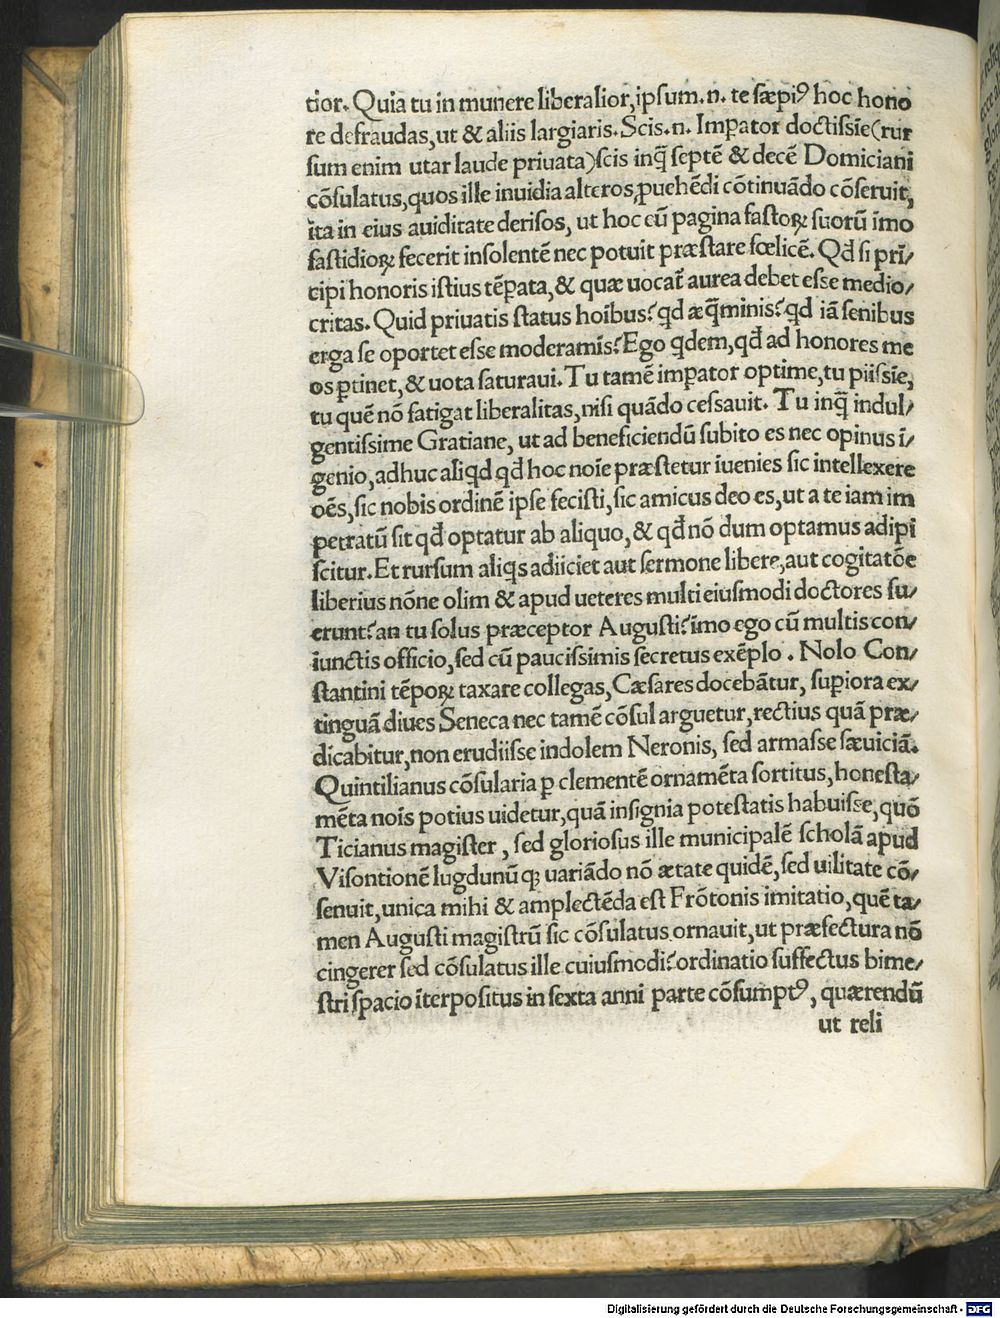 tior. Quia tu in munere liberalior,ipsum.n. te sæpiꝰ hoc hono
re defraudas,ut & aliis largiaris.Scis.n. Imꝑator doctissīe(rur
sum enim utar laude priuata)scis inq̃ septē & decē Domiciani
cōsulatus,quos ille inuidia alteros,puehēdi cōtinuādo cōseruit,
ita in eius auiditate derisos, ut hoc eū pagina fastoꝝ suorū īmo
fastidioꝝ fecerit insolentē nec potuit præstare fœlicē. Qđ si prī/
cipi honoris istius tēꝑata,& quæ uocat̄ aurea debet esse medio/
critas. Quid priuatis status hoībus?qd æq̃minis?qd iā senibus
erga se oportet esse moderamis?Ego qdem,qđ ad honores me
os ꝑtinet,& uota saturaui.Tu tamē imꝑator optime,tu piissīe,
tu quē nō fatigat liberalitas,nisi quādo cessauit. Tu inq̃ indul/
gentissime Gratiane, ut ad beneficiendū subito es nec opinus ī/
genio,adhuc aliqd qđ hoc noīe præstetur iuenies sic intellexere
oēs,sic nobis ordinē ipse fecisti,sic amicus deo es,ut a te iam im
petratū sit qđ optatur ab aliquo,& qđ nō dum optamus adipi
scitur.Et rursum aliqs adiiciet aut sermone libere,aut cogitatōe
liberius nōne olim & apud ueteres multi eiusmodi doctores fu/
erunt?an tu solus præceptor Augusti?imo ego cū multis con/
iunctis officio,sed cū paucissimis secretus exēplo . Nolo Con/
stantini tēpoꝝ taxare collegas,Cæsares docebātur, suꝑiora ex/
tinguā diues Seneca nec tamē cōsul arguetur,rectius quā præ/
dicabitur,non erudiisse indolem Neronis, sed armasse sæuiciā.
Quintilianus cōsularia ꝑ clementē ornamēta sortitus,honesta/
mēta nois potius uidetur,quā insignia potestatis habuisse,quō
Ticianus magister , sed gloriosus ille municipalē scholā apud
Visontionē lugdunū qꝫ uariādo nō ætate quidē,sed uilitate cō/
senuit,unica mihi & amplectēda est Frōtonis imitatio,quē ta/
men Augusti magistrū sic cōsulatus ornauit,ut præfectura nō
cingerer sed cōsulatus ille cuiusmodi?ordinatio suffectus bime/
stri spacio īterpositus in sexta anni parte cōsumptꝰ, quærendū
ut reli
Digitalisierung gefördert durch die Deutsche Forschungsgemeinschaft - DFG